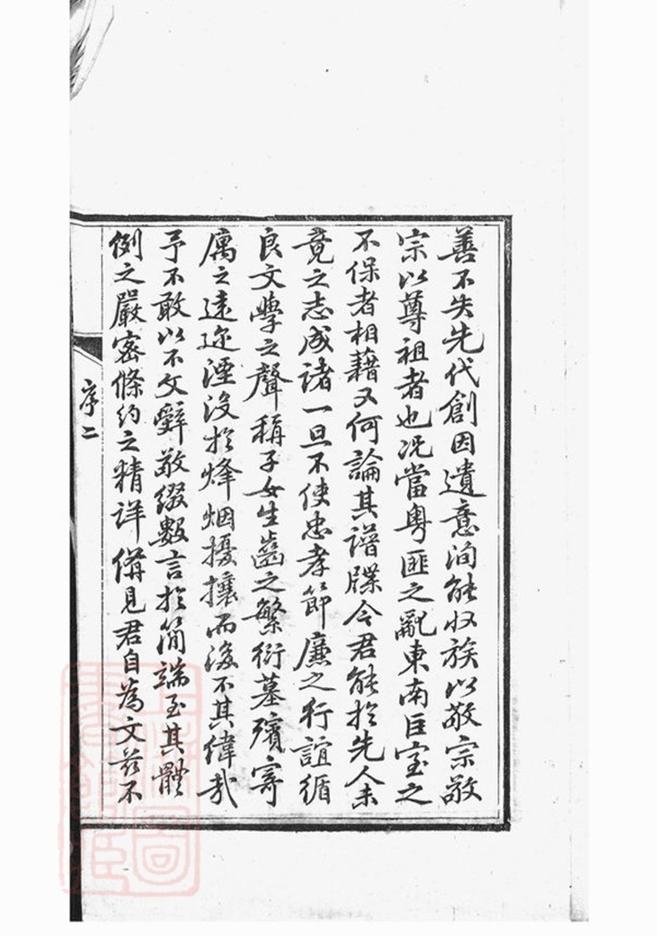 善不失先代創因遺意洵能收族以敬宗敬
宗以尊祖者也况當粤匪之亂東南巨室之
不保者相藉又何論其譜牒今君能於先人未
竟之志成諸一旦不使忠孝節廉之行誼循
良文學之聲稱子女生齒之繁衍墓殯寄
厲之遠迩湮没於烽烟擾攘而後不其偉哉
予不敢以不文辭敬綴數言於簡端至其體
例之嚴密條約之精详備見君自為文兹不
序二